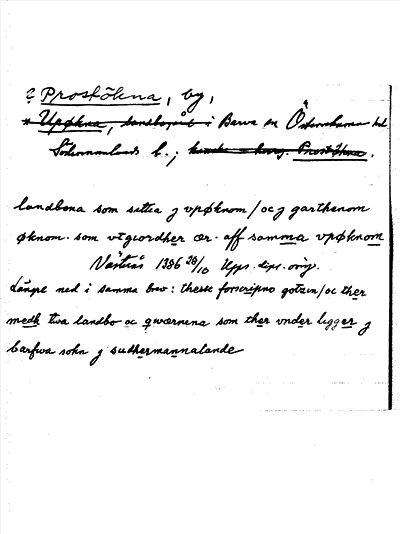 ? Prostökna, by,
* Upøkna, landbogård i Barva sn Österrekarne hd
Södermanlands l.; kanske = kvarg. Prostökna.
landbona som sittia j vpøknom/oc j garthenom
øknom. som vtgiordher ær. aff samma vpøknom
Västerås 1386 28/10 Upps. dipl. orig.
Längre ned i samma brev: thesse forscripno gotzen/oc ther
medh twa landbo oc qwærnena som ther vnder ligger j
barfwa sokn j sudhermannalande